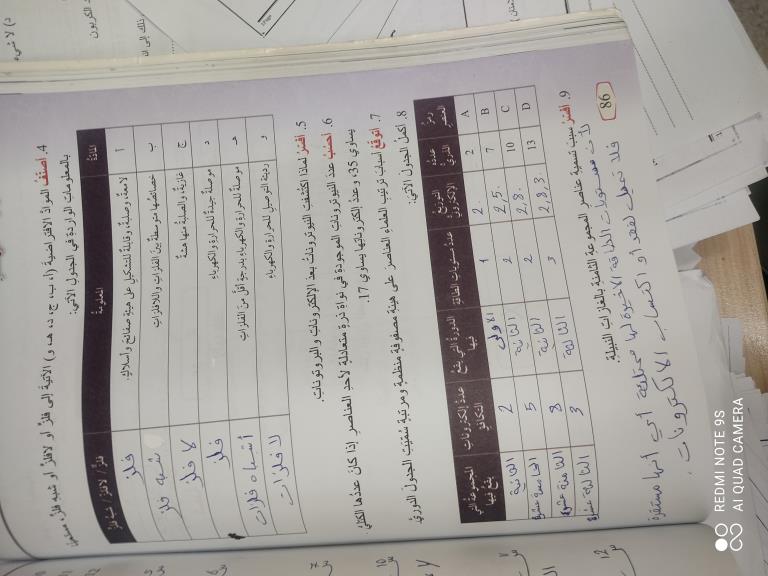 4. أصنف المواد الافتراضية (أ، ب، ج، د، هـ، و) الآتية إلى فلز أو لافلز أو شبه فلز، مستعينًا
بالمعلومات الواردة في الجدول الآتي:
المادة المعلومة فلز / لافلز / شبه فلز
أ لامعة، وصلبة، وقابلة للتشكيل على هيئة صفائح وأسلاك. فلز
ب خصائصها متوسطة بين الفلزات واللافلزات شبه فلز
ج غازية، والصلبة منها هشة لا فلز
د موصلة جيدة للحرارة والكهرباء فلز
هـ موصلة للحرارة والكهرباء بدرجة أقل من الفلزات أشباه فلزات
و رديئة التوصيل للحرارة والكهرباء لا فلزات
5. أفسر لماذا اكتشفت النيوترونات بعد الإلكترونات والبروتونات.
6. أحسب عدد النيوترونات الموجودة في نواة ذرة متعادلة لأحد العناصر إذا كان عددها الكتلي
يساوي 35، وعدد إلكتروناتها يساوي 17.
7. أتوقع أسباب ترتيب العلماء العناصر على هيئة مصفوفة منظمة ومرتبة سُميت الجدول الدوري.
8. أكمل الجدول الآتي:
رمز العنصر عدده الذري التوزيع الإلكتروني عدد مستويات الطاقة الدورة التي يقع فيها عدد إلكترونات التكافؤ المجموعة التي يقع فيها
A 2 2. 1 الأولى 2 الثانية
B 7 2,5. 2 الثانية 5 الخامسة عشرة
C 10 2,8. 2 الثانية 8 الثامنة عشرة
D 13 2,8,3 3 الثالثة 3 الثالثة عشرة
9. أفسر سبب تسمية عناصر المجموعة الثامنة بالغازات النبيلة.
لأن مستويات الطاقة الأخيرة لها ممتلئة أي أنها مستقرة
فلا تميل لفقد أو اكتساب الإلكترونات.
86
REDMI NOTE 9S
AI QUAD CAMERA